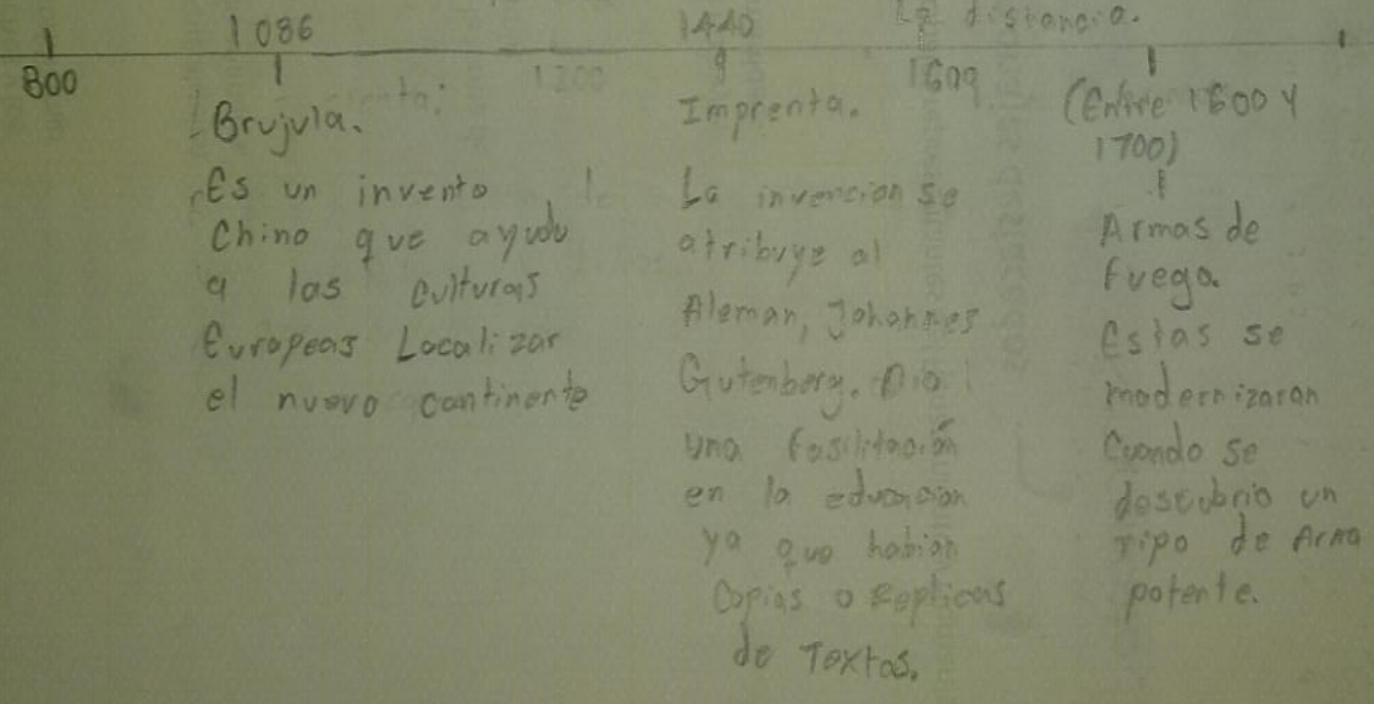 La distancia.
1086
1440
800
1200
1609
Brujula.
Es un invento
Chino que ayudo
a las culturas
Europeas Localizar
el nuevo continente
Imprenta.
La invencion se
atribuye al
Aleman, Johannes
Gutenberg. Dio
una fasilitación
en la educacion
ya que habian
Copias o Replicas
de Textos.
(Entre 1600 y
1700)
Armas de
fuego.
Estas se
modernizaron
Cuando se
descubrio un
tipo de Arma
potente.